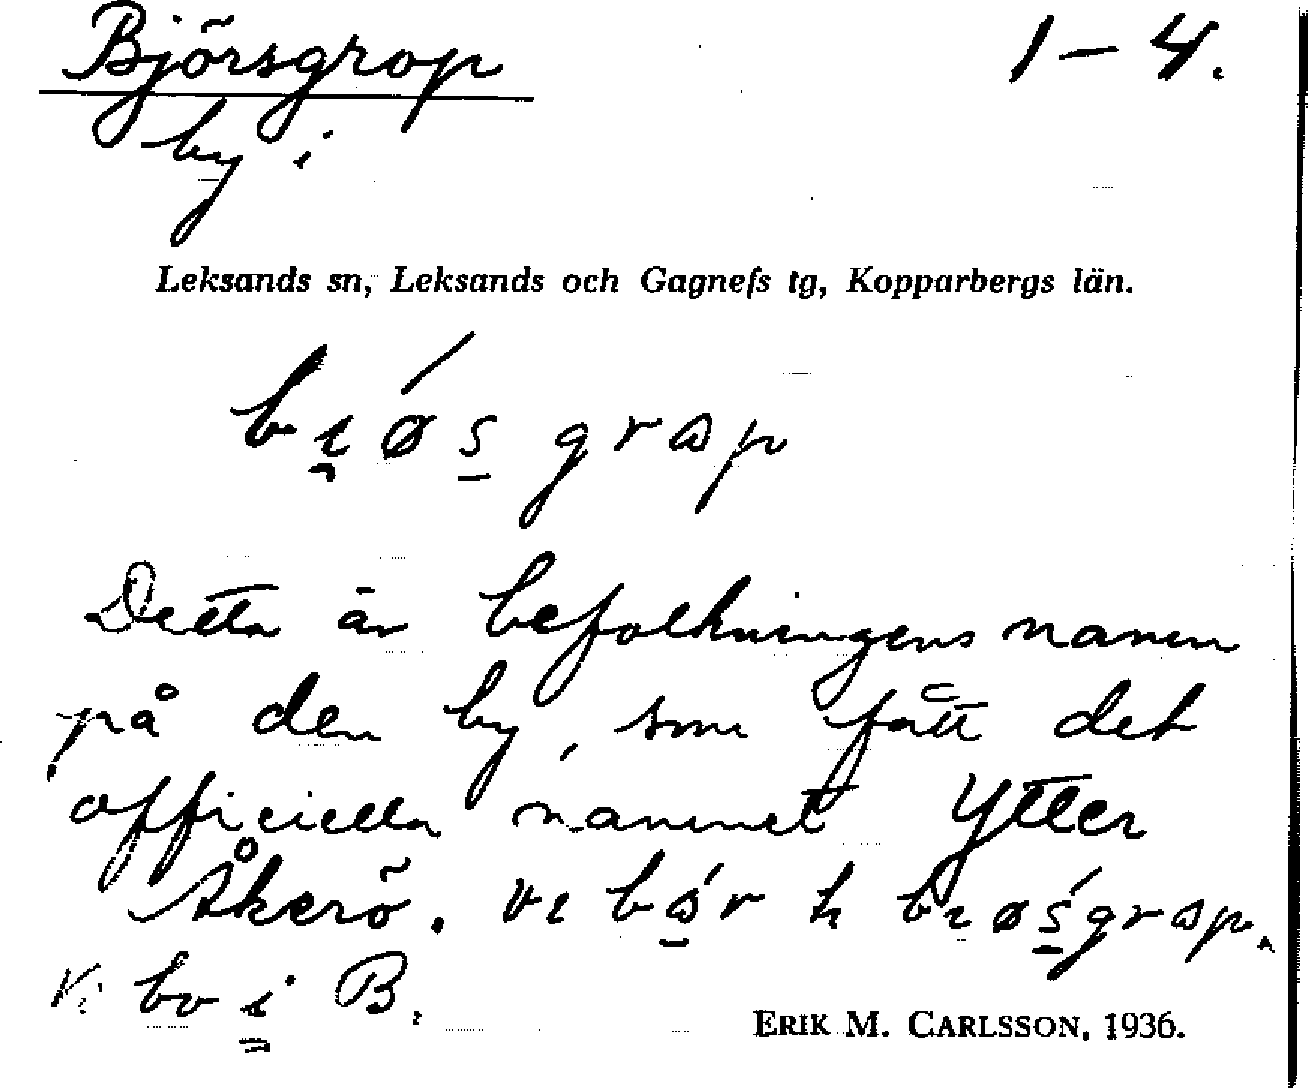 Björsgrop 1–4.
by i
Leksands sn, Leksands och Gagnefs tg, Kopparbergs län.
Detta är befolkningens namn
på den by, som fått det
officiella namnet Ytter
Åkerö.
Vi bo i B.
ERIK M. CARLSSON, 1936.